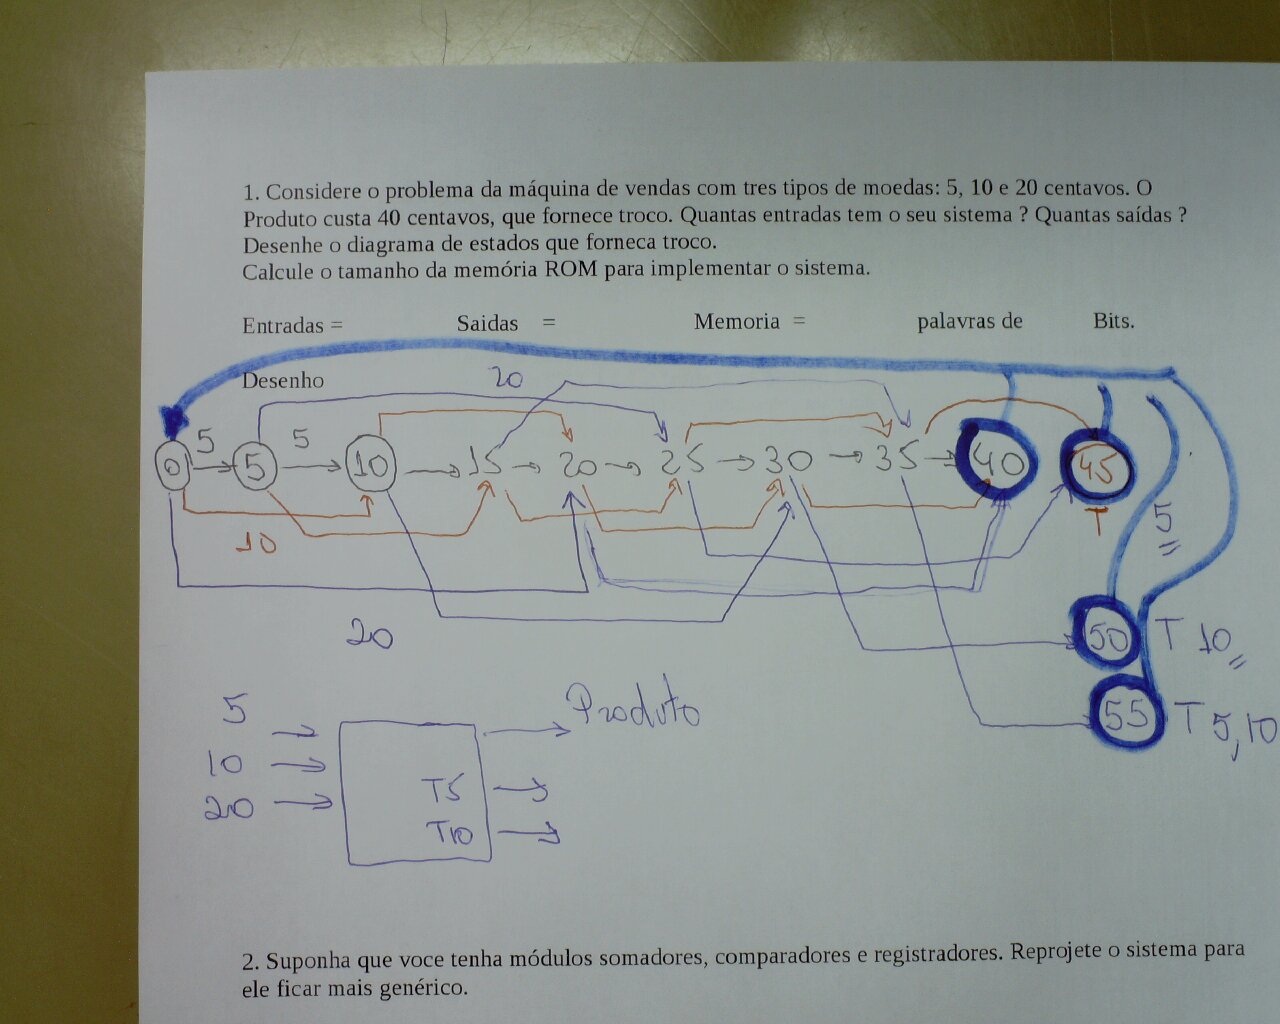 1. Considere o problema da máquina de vendas com tres tipos de moedas: 5, 10 e 20 centavos. O
Produto custa 40 centavos, que fornece troco. Quantas entradas tem o seu sistema ? Quantas saídas ?
Desenhe o diagrama de estados que forneca troco.
Calcule o tamanho da memória ROM para implementar o sistema.
Entradas = Saidas = Memoria = palavras de Bits.
Desenho 20
5 5
0 5 10 15 20 25 30 35 40 45
T
5
10
20
50 T 10
55 T 5,10
5 Produto
10 T5
20 T10
2. Suponha que voce tenha módulos somadores, comparadores e registradores. Reprojete o sistema para
ele ficar mais genérico.